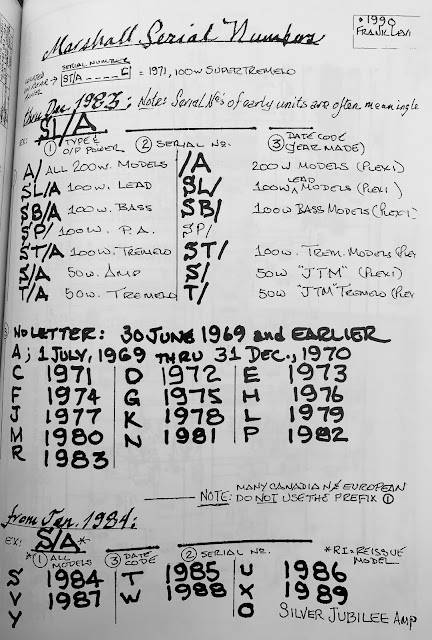 Marshall Serial Numbers
©1990
FRANK LEVI
SERIAL NUMBER
ST/A _ _ _ _ C = 1971, 100W SUPER TREMELO
thru Dec. 1983: Note: Serial Nº's of early units are often meaningle
EX: SL/A
① TYPE & O/P POWER ② SERIAL Nº. ③ DATE CODE (YEAR MADE)
A/ ALL 200W. MODELS /A 200W MODELS (PLEXI)
SL/A 100W. LEAD SL/ 100W. LEAD MODELS (PLEXI)
SB/A 100W. BASS SB/ 100W BASS MODELS (PLEXI
SP/ 100W. P.A. SP/
ST/A 100W. TREMELO ST/ 100W. TREM. MODELS (PLEX
S/A 50W. AMP S/ 50W "JTM" (PLEXI)
T/A 50W. TREMELO T/ 50W "JTM" TREMELO (PLEX
③ NO LETTER: 30 JUNE 1969 and EARLIER
A; 1 JULY, 1969 THRU 31 DEC., 1970
C 1971 D 1972 E 1973
F 1974 G 1975 H 1976
J 1977 K 1978 L 1979
M 1980 N 1981 P 1982
R 1983
NOTE: MANY CANADIAN & EUROPEAN
DO NOT USE THE PREFIX ①
from Jan. 1984:
EX: S/A*
*① ALL MODELS ③ DATE CODE ② SERIAL Nº. *RI=REISSUE MODEL
S 1984 T 1985 U 1986
V 1987 W 1988 X 1989
Y O SILVER JUBILEE AMP